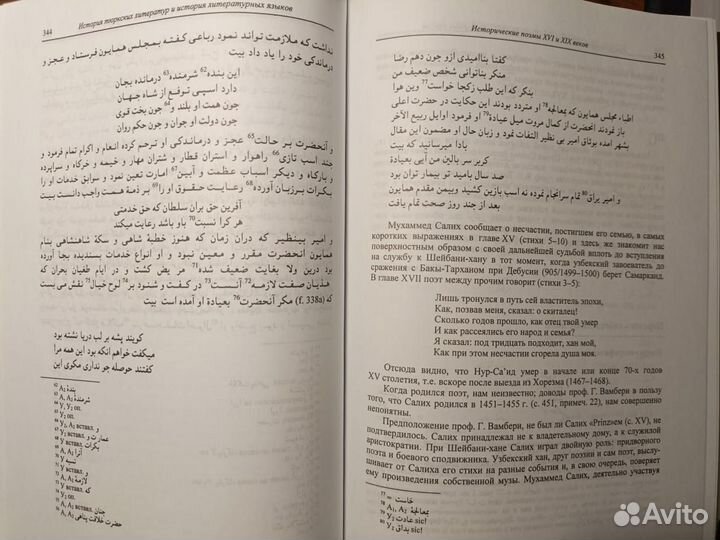 344
История тюркских литератур и история литературных языков
نداشت که ملازمت تواند نمود رباعی گفته بمجلس همایون فرستاد و عجز و
درماندگی خود را یاد داد بیت
این بنده 62 شرمنده 63 درمانده بجان
دارد اسپی توقع از شاه جهان
چون همت او بلند و 64 چون بخت قوی
چون دولت او جوان و چون حکم روان
و آنحضرت بر حالت 65 عجز و درماندگی او ترحم کرده انعام و اکرام تمام فرمود و
چند اسب تازی 66 راهوار و استران قطار و شتران مهار و خیمه و خرگاه و سراپرده
و بارگاه و دیگر اسباب عظمت و آیین 67 امارت تعین نمود و سوابق خدمات او را
بکرات برزبان آورده 68 رعایت حقوق او را 69 بر ذمهٔ همت واجب دانست بیت
آفرین حق بران سلطان که حق خدمتی
هر کرا نسبت 70 باو باشد رعایت میکند
و امیر بینظیر که دران زمان که هنوز خطبهٔ شاهی و سکهٔ شاهنشاهی بنام
همایون آنحضرت مقرر و معین نبود و او انواع خدمات پسندیده بجا آورده
بود درین ولا بغایت ضعیف شده 71 مریض گشت و در ایام طغیان بحران که
هذیان صفت لازمهٔ 72 آنست 73 سخنان میگفت و بر لوح خیال 74 نقش می بست
مگر آنحضرت 76 بعیادهٔ او آمده است بیت (f. 338a)
گویند پشه بر لب دریا نشته بود
میگفت خواهم آنکه بود این همه مرا
گفتند حوصله چو نداری مگوی این
62 A2 بندهٔ
63 A2 شرمندهٔ
64 У, У2 оп.
65 У2, A2 вставл. و
66 У2 вставл. و
67 У2 عمار ت و
68 У вставл. بکرات
69 A, A2 آنرا
70 У نسبه
71 У вставл. و
72 A, A2 لازمهٔ
73 У вставл. که
74 У2 оп.
75 У вставл. چنان
76 A, A2 حضرت خلافت پناهی
Исторические поэмы XVI и XIX веков
345
گفتا بناامیدی ازو چون دهم رضا
منکر بناتوانی شخص ضعیف من
بنگر که این طلب زکجا خواست 77 وین هوا
اطباء مجلس همایون که بمعالجهٔ 78 او متردد بودند این حکایت در حضرت اعلی
باز نمودند آنحضرت از کمال مروت میل عیادهٔ 79 او فرمود اوایل ربیع الآخر
بشهر آمده بوثاق امیر بی نظیر التفات نمود و زبان حال او مضمون این مقال
بادا میرسانید که بیت
گر بر سر بالین من آیی بعیادة
صد سال بامید تو بیمار توان بود
و امیر یراق 80 تمام سرانجام نموده نه اسب بازین کشید وبیمن مقدم همایون
بعد از چند روز صحت تمام یافت
Мухаммед Салих сообщает о несчастии, постигшем его семью, в самых
коротких выражениях в главе XV (стихи 5–10) и здесь же знакомит нас
поверхностным образом с своей дальнейшей судьбой вплоть до вступления
на службу к Шейбани-хану в тот момент, когда узбекский завоеватель до
сражения с Бакы-Тарханом при Дебусии (905/1499-1500) берет Самарканд.
В главе XVII поэт между прочим говорит (стихи 3–5):
Лишь тронулся в путь сей властитель эпохи,
Как, позвав меня, сказал: о скиталец!
Сколько годов прошло, как отец твой умер
И как рассеялись его народ и семья?
Я сказал: под тридцать подходит, хан мой,
Как при этом несчастии сгорела душа моя.
Отсюда видно, что Нур-Са'ид умер в начале или конце 70-х годов
XV столетия, т.е. вскоре после выезда из Хорезма (1467–1468).
Когда родился поэт, нам неизвестно; доводы проф. Г. Вамбери в пользу
того, что Салих родился в 1451-1455 г. (с. 451, примеч. 22), нам совершенно
непонятны.
Предположение проф. Г. Вамбери, не был ли Салих «Prinz»ем (с. XV), не
подтвердилось. Салих принадлежал не к владетельному дому, а к служилой
аристократии. При Шейбани-хане Салих играл двойную роль: придворного
поэта и боевого сподвижника. Узбекский хан, друг поэзии и сам поэт, выслу-
шивает от Салиха его стихи на разные события и, в свою очередь, поверяет
ему произведения собственной музы. Мухаммед Салих, деятельно участвуя
77 = خاست
78 A1, A2 بمعالجهٔ
79 У2 عادت sic!
80 У2 بداق sic!
Avito